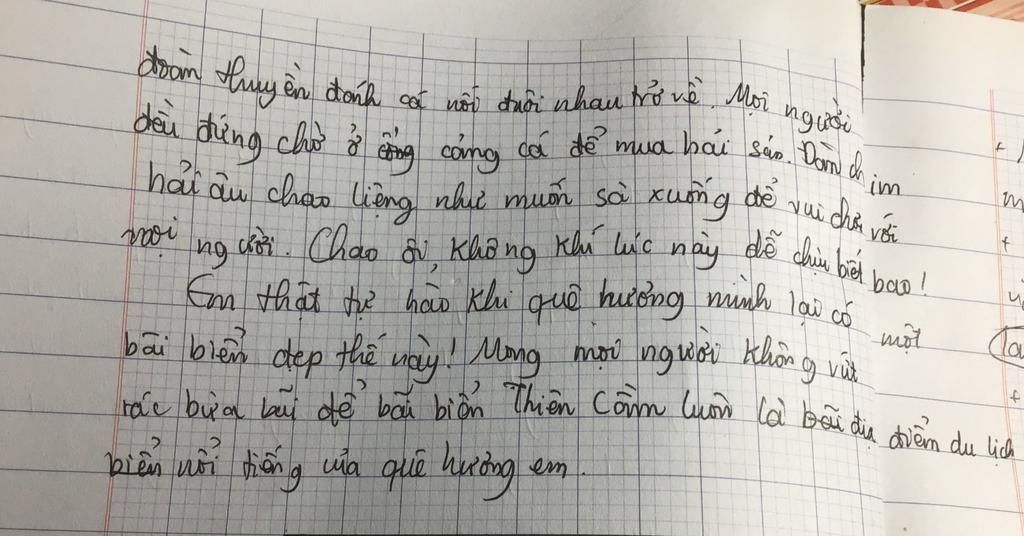 đoàn thuyền đánh cá nối đuôi nhau trở về. Mọi người
đều đứng chờ ở cảng cá để mua hải sản. Đàn chim
hải âu chao liệng như muốn sà xuống để vui chơi với
mọi người. Chao ôi, không khí lúc này dễ chịu biết bao!
Em thật tự hào khi quê hương mình lại có một
bãi biển đẹp thế này! Mong mọi người không vứt
rác bừa bãi để bãi biển Thiên Cầm luôn là địa điểm du lịch
biển nổi tiếng của quê hương em.